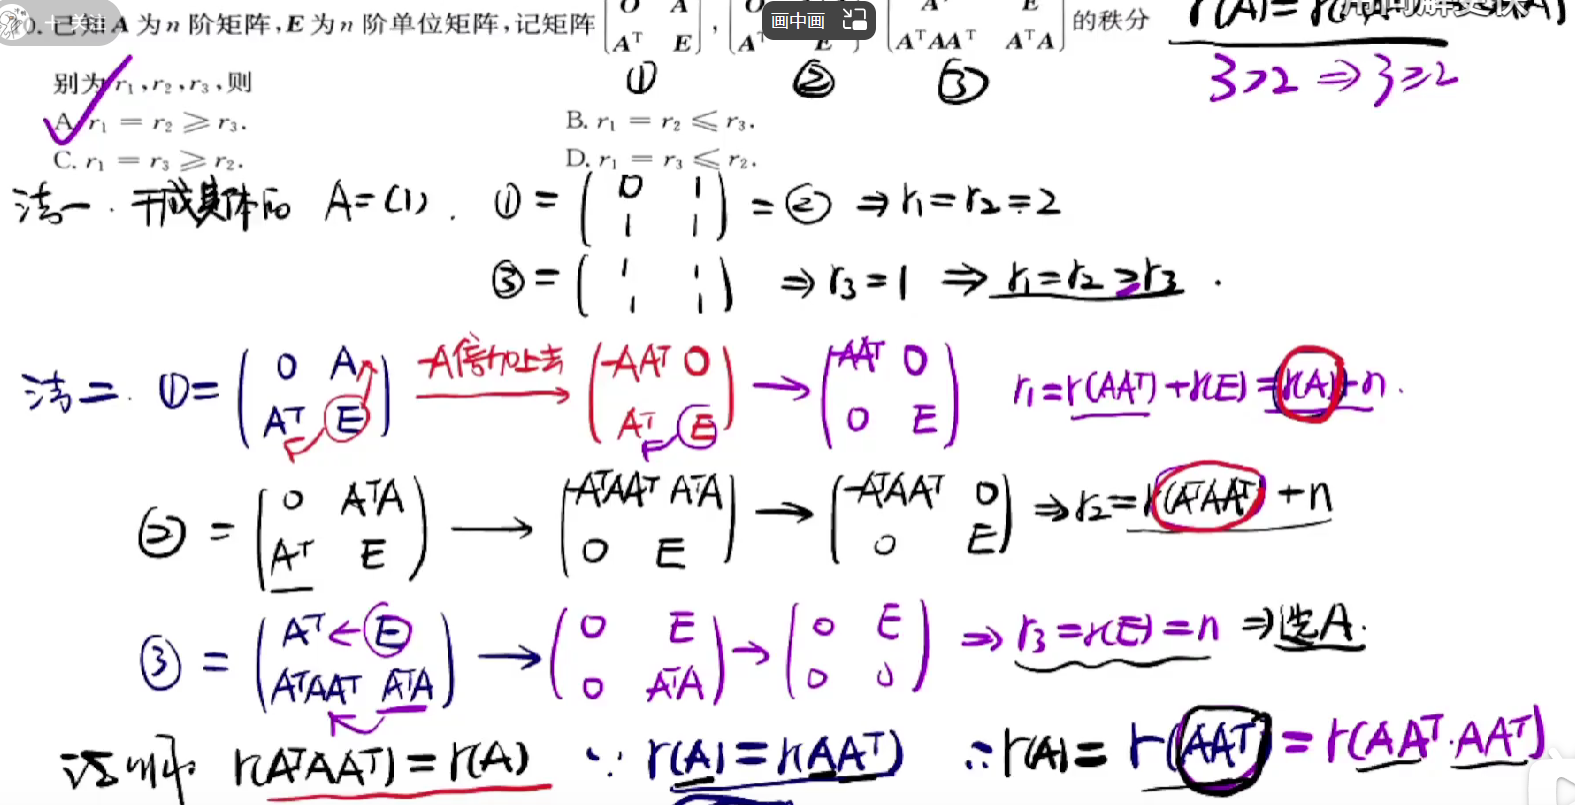 十 关注
0. 已知 A 为 n 阶矩阵,E 为 n 阶单位矩阵,记矩阵 [O A; Aᵀ E], [ ; Aᵀ E], [Aᵀ E; AᵀAAᵀ AᵀA] 的秩分
画中画
① ② ③
3>2 ⇒ 3≥2
别为 r₁,r₂,r₃,则
A. r₁ = r₂ ≥ r₃.
B. r₁ = r₂ ≤ r₃.
C. r₁ = r₃ ≥ r₂.
D. r₁ = r₃ ≤ r₂.
法一. 干成具体的 A=(1). ①= (0 1; 1 1) =② ⇒ r₁=r₂=2
③= (1 1; 1 1) ⇒ r₃=1 ⇒ r₁=r₂≥r₃.
法二. ①= (0 A; Aᵀ E) -A倍加上去 → (-AAᵀ 0; Aᵀ E) → (-AAᵀ 0; 0 E) r₁=r(AAᵀ)+r(E)=r(A)+n.
② = (0 AᵀA; Aᵀ E) → (-AᵀAAᵀ AᵀA; 0 E) → (-AᵀAAᵀ 0; 0 E) ⇒ r₂=r(AᵀAAᵀ)+n
③ = (Aᵀ ← E; AᵀAAᵀ AᵀA) → (0 E; 0 AᵀA) → (0 E; 0 0) ⇒ r₃=r(E)=n ⇒选A.
r(AᵀAAᵀ)=r(A) ∵ r(A)=r(AAᵀ) ∴ r(A)= r(AAᵀ)=r(AAᵀ·AAᵀ)